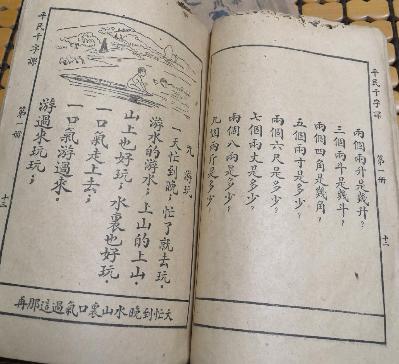 平民千字課
第一冊
十二
兩個兩升是幾升？
三個兩斗是幾斗？
兩個四角是幾角？
五個兩寸是多少？
兩個六尺是多少？
七個兩丈是多少？
兩個八兩是多少？
九個兩斤是多少？
九 游玩
一天忙到晚；忙了就去玩．
游水的游水；上山的上山．
山上也好玩；水裏也好玩．
一口氣走上去；
一口氣游過來．
游過來玩玩；
天忙到晚水山裏口氣過這那再
平民千字課
第一冊
十三